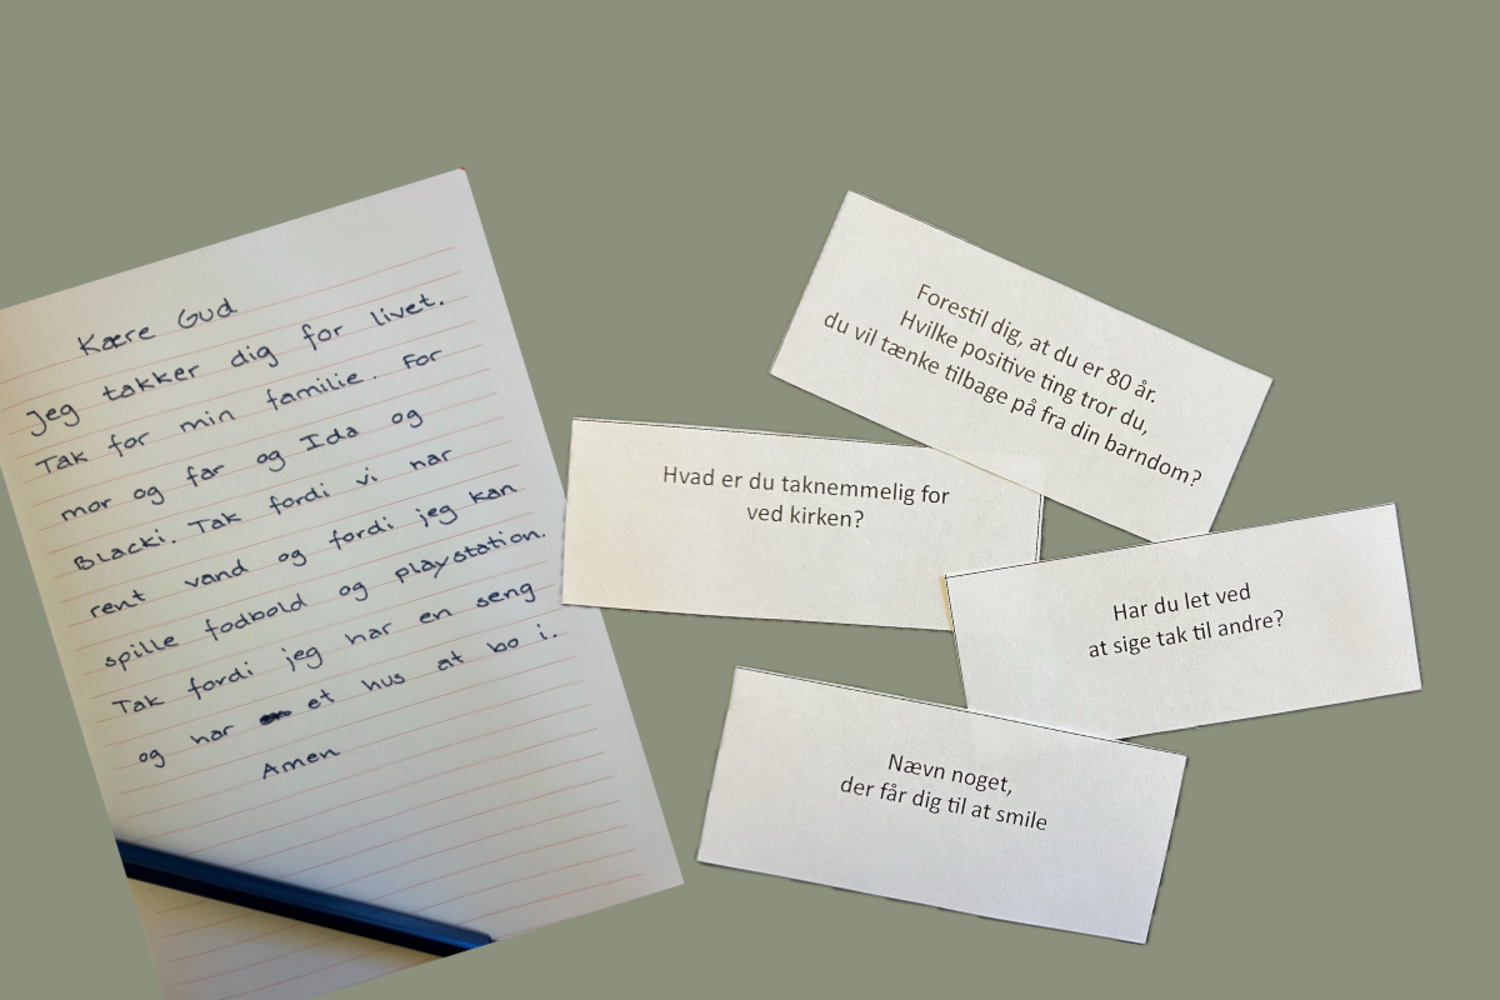 Kære Gud
Jeg takker dig for livet.
Tak for min familie. For
mor og far og Ida og
Blacki. Tak fordi vi har
rent vand og fordi jeg kan
spille fodbold og playstation.
Tak fordi jeg har en seng
og har et hus at bo i.
Amen
Forestil dig, at du er 80 år.
Hvilke positive ting tror du,
du vil tænke tilbage på fra din barndom?
Hvad er du taknemmelig for
ved kirken?
Har du let ved
at sige tak til andre?
Nævn noget,
der får dig til at smile